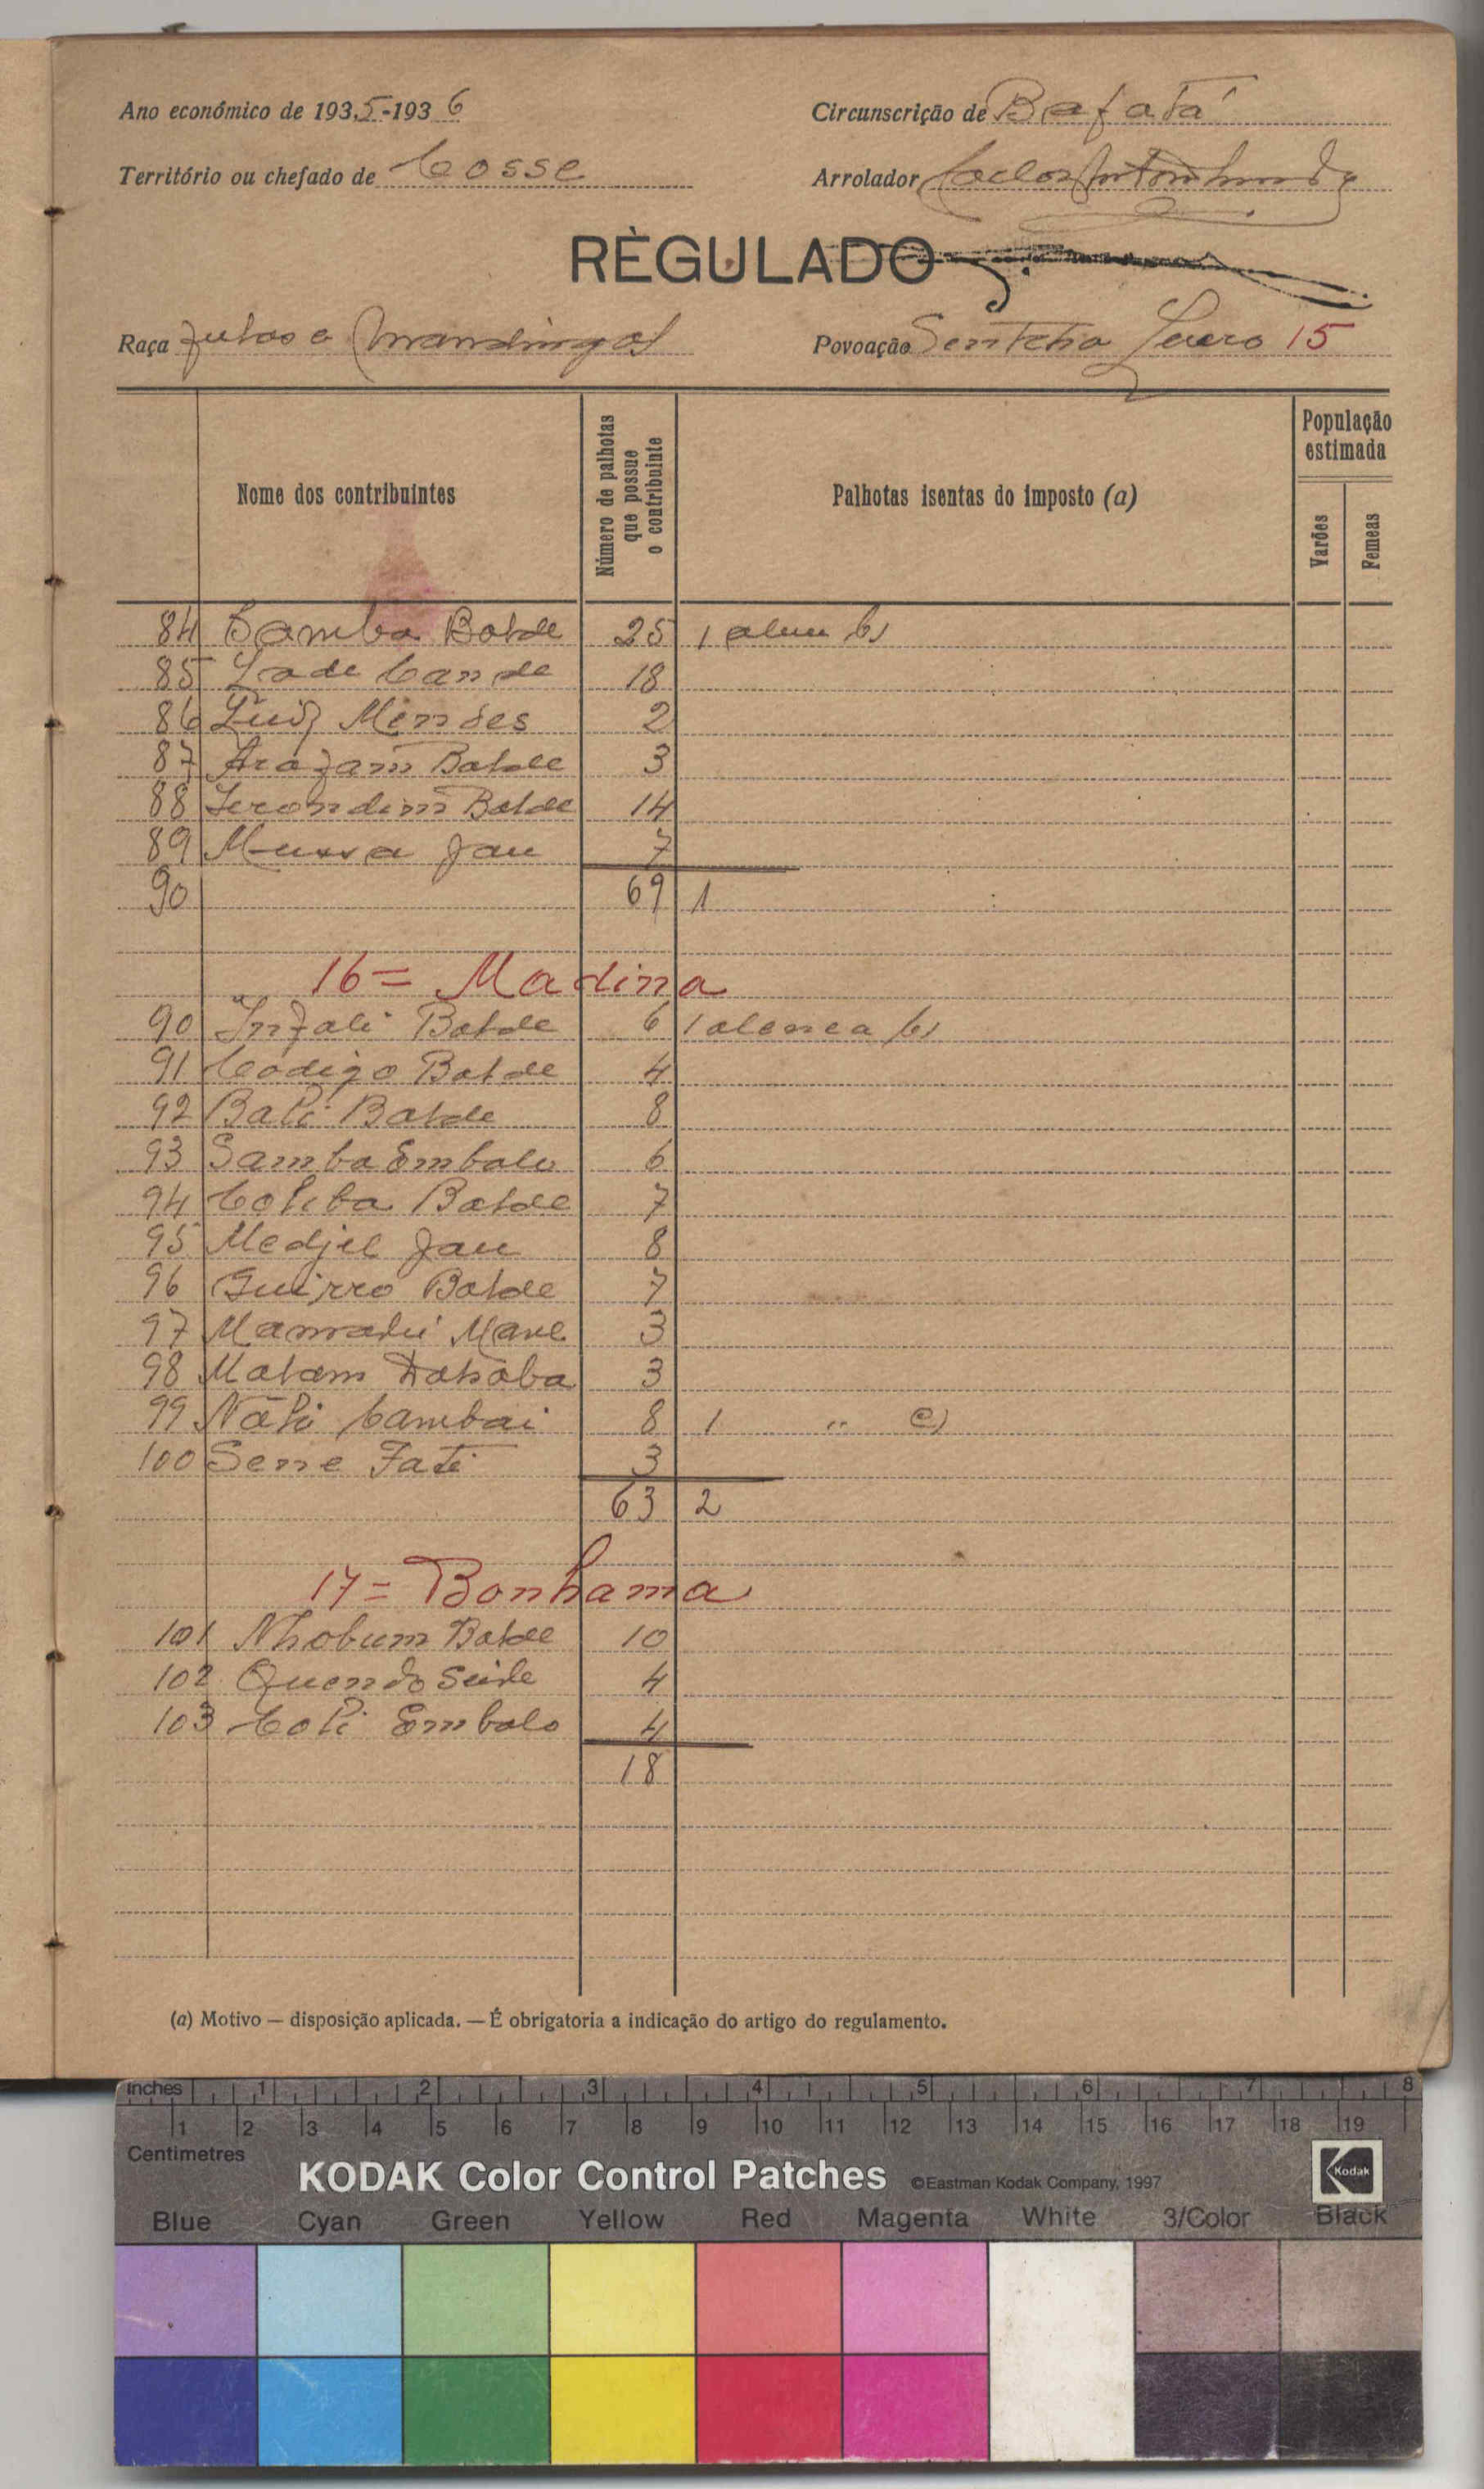 Ano económico de 1935-1936 Circunscrição de Bafatá
Território ou chefado de Cosse Arrolador
RÈGULADO
Raça Fulas e Mandingas Povoação Sentcha 15
Nome dos contribuintes
Número de palhotas que possue o contribuinte
Palhotas isentas do imposto (a)
População estimada
Varões
Femeas
84 Samba Balde 25 1 b)
85 Cande 18
86 Luiz Mendes 2
87 Arafam Balde 3
88 Balde 14
89 Mussa Jau 7
90 69 1
16 = Madina
90 Infali Balde 6 1 b)
91 Codigo Balde 4
92 Bali Balde 8
93 Samba Embalo 6
94 Coliba Balde 7
95 Medjel Jau 8
96 Guirro Balde 7
97 Mamadú Mane 3
98 Malam Dahaba 3
99 Náli Cambai 8 1 " e)
100 Sene Fati 3
63 2
17 = Bonhama
101 Nhobum Balde 10
102 Quendo Seide 4
103 Coli Embalo 4
18
(a) Motivo — disposição aplicada. — É obrigatoria a indicação do artigo do regulamento.
inches 1 2 3 4 5 6 7 8
1 2 3 4 5 6 7 8 9 10 11 12 13 14 15 16 17 18 19
Centimetres
KODAK Color Control Patches ©Eastman Kodak Company, 1997 Kodak
Blue Cyan Green Yellow Red Magenta White 3/Color Black